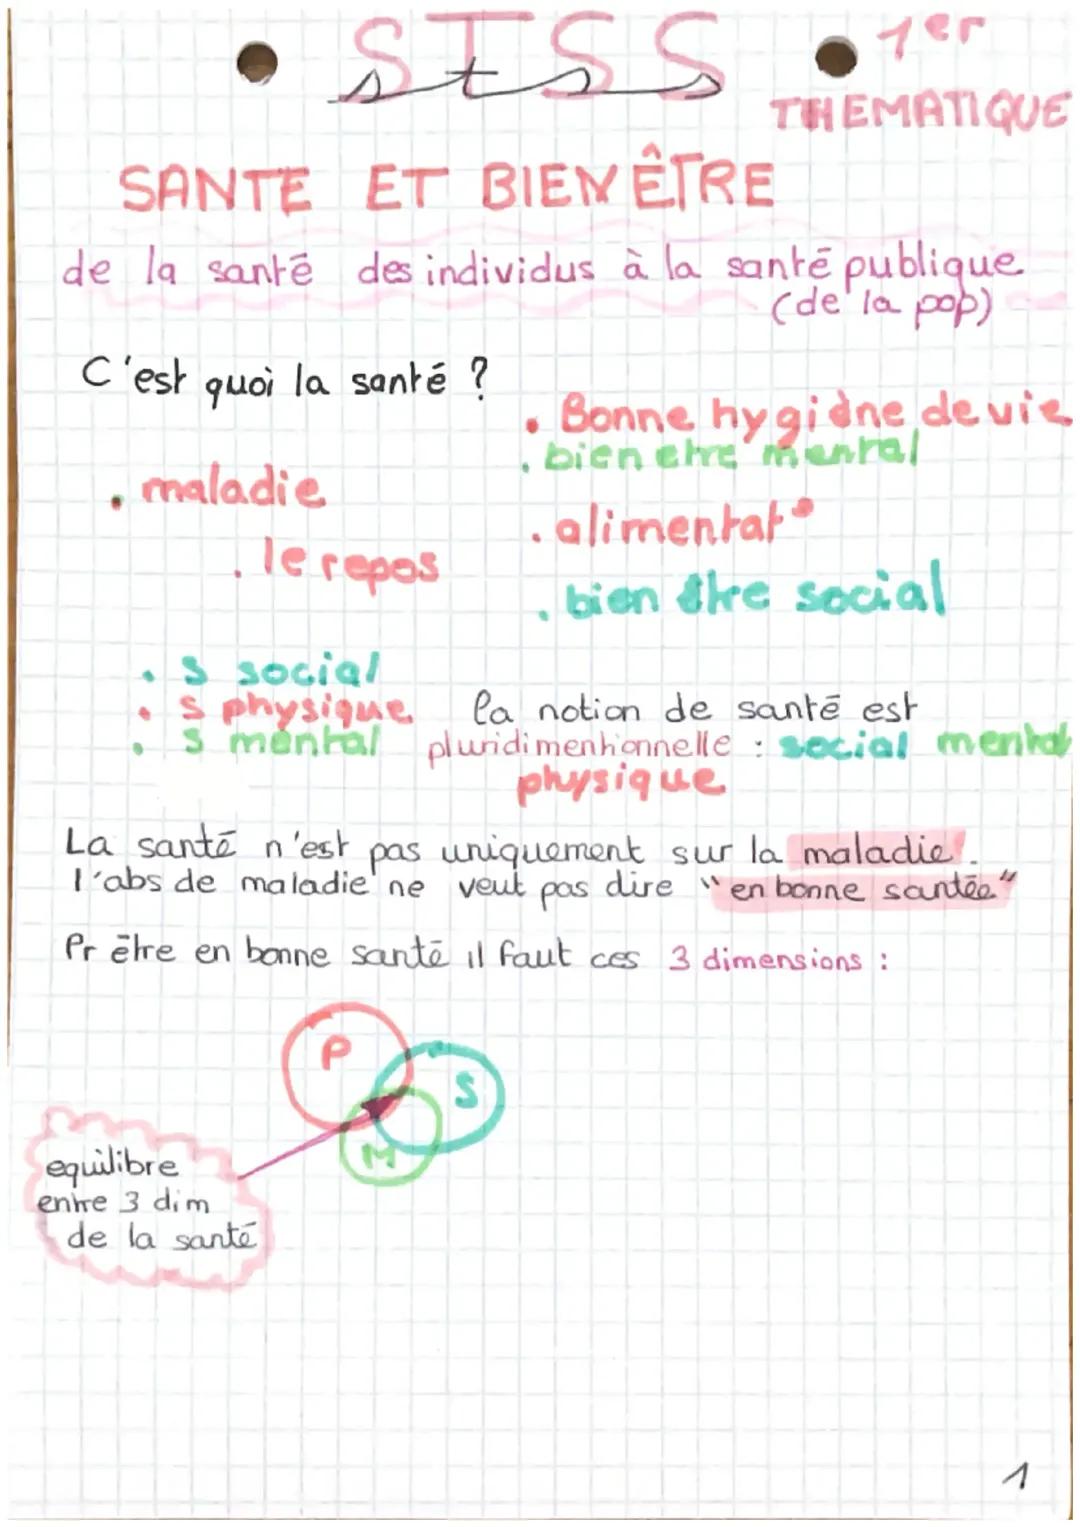 STSS
stss
1er
THEMATIQUE
SANTE ET BIEN ÊTRE
de la santé des individus à la santé publique
(de la pop)
C'est quoi la santé ?
. Bonne hygiène de vie
. bien etre mental
. maladie
. alimentat°
. le repos
. bien être social
. S social
. S physique
. S mental
la notion de santé est
pluridimentionnelle : social mental
physique
La santé n'est pas uniquement sur la maladie.
l'abs de maladie ne veut pas dire "en bonne santée"
Pr être en bonne santé il faut ces 3 dimensions :
P
S
M
equilibre
entre 3 dim
de la santé
1